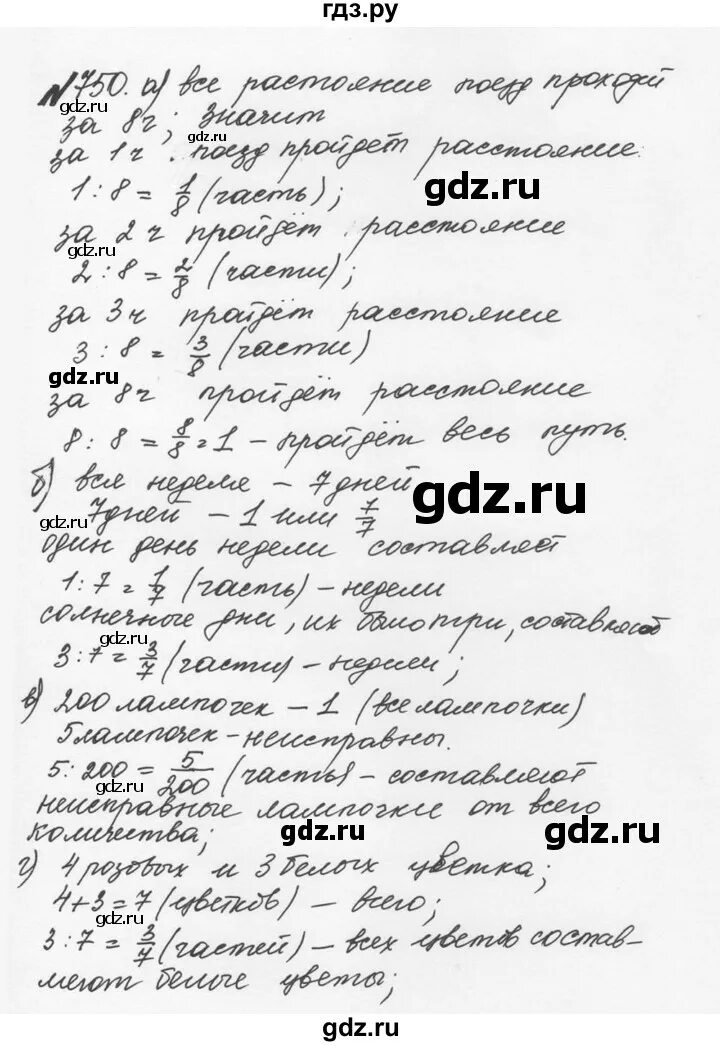 гдз.ру
№750. а) все растояние поезд проходит
за 8ч; значит
gdz.ru
за 1ч поезд пройдёт расстояние.
1 : 8 = 1/8 (часть);
gdz.ru
за 2ч пройдёт расстояние
gdz.ru
2 : 8 = 2/8 (части);
за 3ч пройдёт расстояние
3 : 8 = 3/8 (части)
gdz.ru
за 8ч пройдёт расстояние
8 : 8 = 8/8 = 1 – пройдёт весь путь.
б) вся неделя – 7 дней
gdz.ru
7 дней – 1 или 7/7
gdz.ru
один день недели составляет
1 : 7 = 1/7 (часть) – недели
солнечные дни, их было три, составляют
gdz.ru
3 : 7 = 3/7 (части) – недели;
в) 200 лампочек – 1 (все лампочки)
5 лампочек – неисправны.
5 : 200 = 5/200 (часть) – составляют
gdz.ru
неисправные лампочки от всего
количества;
gdz.ru
gdz.ru
г) 4 розовых и 3 белых цветка;
4 + 3 = 7 (цветков) – всего;
3 : 7 = 3/7 (частей) – всех цветов состав-
gdz.ru
ляют белые цветы;
gdz.ru
gdz.ru